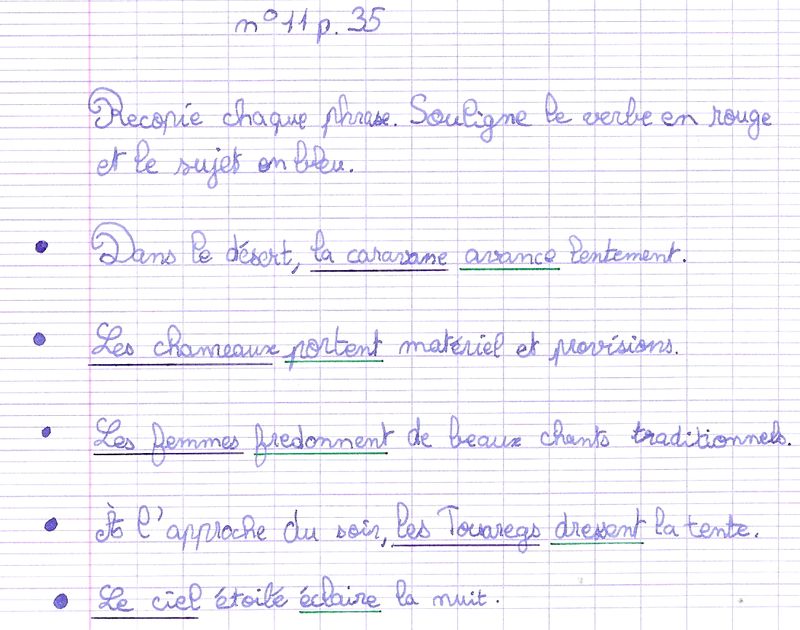 n° 11 p. 35
Recopie chaque phrase. Souligne le verbe en rouge
et le sujet en bleu.
• Dans le désert, la caravane avance lentement.
• Les chameaux portent matériel et provisions.
• Les femmes fredonnent de beaux chants traditionnels.
• À l'approche du soir, les Touaregs dressent la tente.
• Le ciel étoilé éclaire la nuit.